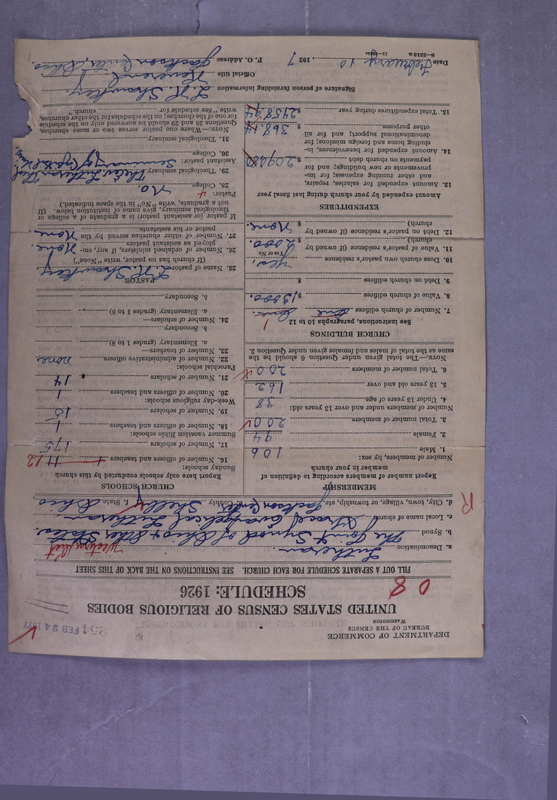 DEPARTMENT OF COMMERCE
BUREAU OF THE CENSUS
WASHINGTON
FEB 24 1927
UNITED STATES CENSUS OF RELIGIOUS BODIES
SCHEDULE: 1926
FILL OUT A SEPARATE SCHEDULE FOR EACH CHURCH. SEE INSTRUCTIONS ON THE BACK OF THIS SHEET
a. Denomination Lutheran
b. Synod The Joint Synod of Ohio & other States
c. Local name of church St Paul Evangelical Lutheran
d. City, town, village, or township, etc. Jackson Center County Shelby State Ohio
MEMBERSHIP
Report number of members according to definition of member in your church
Number of members, by sex:
1. Male 106
2. Female 94
3. Total number of members 200
Number of members under and over 13 years old:
4. Under 13 years of age 38
5. 13 years old and over 162
6. Total number of members 200
NOTE.—The total given under Question 6 should be the same as the total of males and females given under Question 3.
CHURCH BUILDINGS
See instructions, paragraphs 10 to 12
7. Number of church edifices One
8. Value of church edifices $ 15000.
9. Debt on church edifices $
10. Does church own pastor's residence Yes.
(Yes or No)
11. Value of pastor's residence (if owned by church) $ 2000.
12. Debt on pastor's residence (if owned by church) $ None
EXPENDITURES
Amount expended by your church during last fiscal year
13. Amount expended for salaries, repairs, and other running expenses; for improvements or new buildings; and for payments on church debt
14. Amount expended for benevolences, including home and foreign missions; for denominational support; and for all other purposes 368.14
15. Total expenditures during year 2458.94
CHURCH SCHOOLS
Report here only schools conducted by this church
Sunday schools:
16. Number of officers and teachers 12
17. Number of scholars 175
Summer vacation Bible schools:
18. Number of officers and teachers 1
19. Number of scholars 15
Week-day religious schools:
20. Number of officers and teachers 1
21. Number of scholars 14
Parochial schools:
22. Number of administrative officers none
23. Number of teachers—
a. Elementary (grades 1 to 8)
b. Secondary
24. Number of scholars—
a. Elementary (grades 1 to 8)
b. Secondary
PASTOR
25. Name of pastor
(If church has no pastor, write "None")
26. Number of ordained ministers, if any, employed as assistant pastors None
27. Number of other churches served by the pastor or his assistants None
If pastor or assistant pastor is a graduate of a college or theological seminary, give name of institution below. (If not a graduate, write "No" in the space indicated.)
Pastor:
28. College No,
29. Theological seminary
Assistant pastor:
30. College
31. Theological seminary
NOTE.—Where one pastor serves two or more churches, Questions 28 and 29 should be answered only on the schedule for one of the churches; on the schedule for the other churches, write "See schedule for church."
Signature of person furnishing information
Official title Reverend
P. O. Address Jackson Center, Ohio
Date February 10, 1927